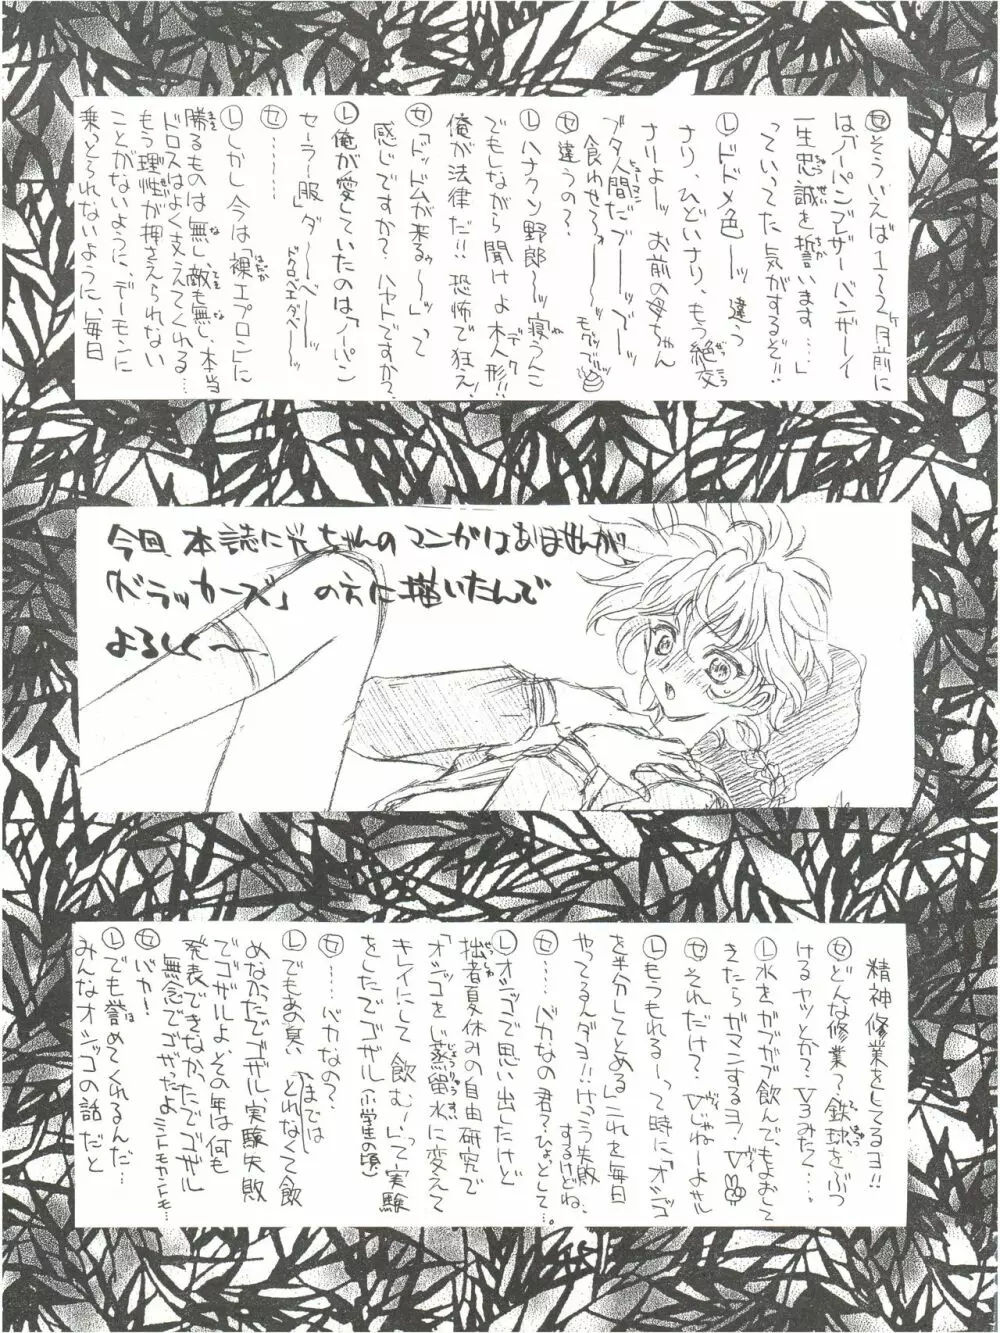 セ そういえば1〜2ヶ月前に
は「ノーパンブレザーバンザーイ
一生忠誠を誓います……」
っていってた気がするぞ!!
レ ドドメ色ーッ 違う
ナリ、ひどいナリ、もう絶交
ナリよー お前の母ちゃん
ブタ人間だブーーデーー
食わせろっーー
セ 違うの?
レ ハナクソ野郎ーッ 寝うんこ
でもしながら聞けよ木人形!!
俺が法律だ!! 恐怖で狂え!
セ「ドッドムが来るゥー」って
感じですか? ハヤトですか?
レ 俺が愛していたのは「ノーパン
セーラー服」ダーベーーッ
セ ………
レ しかし今は裸エプロンに
勝るものは無し、敵も無し、本当
ドロスはよく支えてくれる…
もう理性が押さえられない
ことがないように、デーモンに
乗っとられないように、毎日
今回 本誌に光ちゃんの マンガはありませんが
「ドラッカーズ」の方に描いたんで
よろしく〜
精神修業をしてるヨ!!
セ どんな修業? 鉄球をぶつ
けるヤツとか? V3みたく…。
レ 水をガブガブ飲んで、もよおして
きたらガマンするヨ・V
セ それだけ?・Vじゃねーよサル
レ もうもれるーって時に「オシッコ
を半分してとめる」これを毎日
やってるんダヨ!! けっこう失敗
するけどね、
セ ……バカなの君? ひょっとして…。
レ オシッコで思い出したけど
拙者夏休みの自由研究で
「オシッコをじ蒸留水に変えて
キレイにして飲む」って実験
をしたでゴザル(小学生の頃)
セ …バカなの?
レ でもあの臭いまではとれなくて飲
めなかったでゴザル実験失敗
でゴザルよ、その年は何も
発表できなかったでゴザル
無念でゴザったよ
セ バカ!
レ でも誉めてくれるんだ…
みんなオシッコの話だと